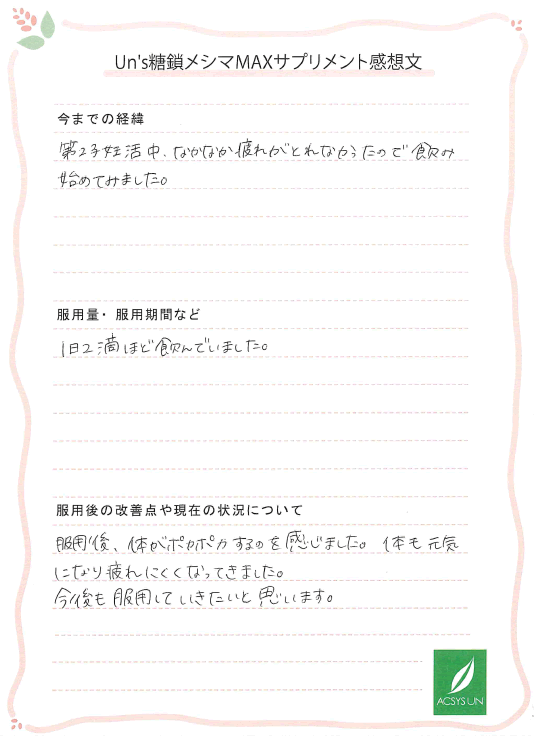 Un's糖鎖メシマMAXサプリメント感想文
今までの経緯
第2子妊活中、なかなか疲れがとれなかったので飲み
始めてみました。
服用量・服用期間など
1日2滴ほど飲んでいました。
服用後の改善点や現在の状況について
服用後、体がポカポカするのを感じました。体も元気
になり疲れにくくなってきました。
今後も服用していきたいと思います。
ACSYS UN